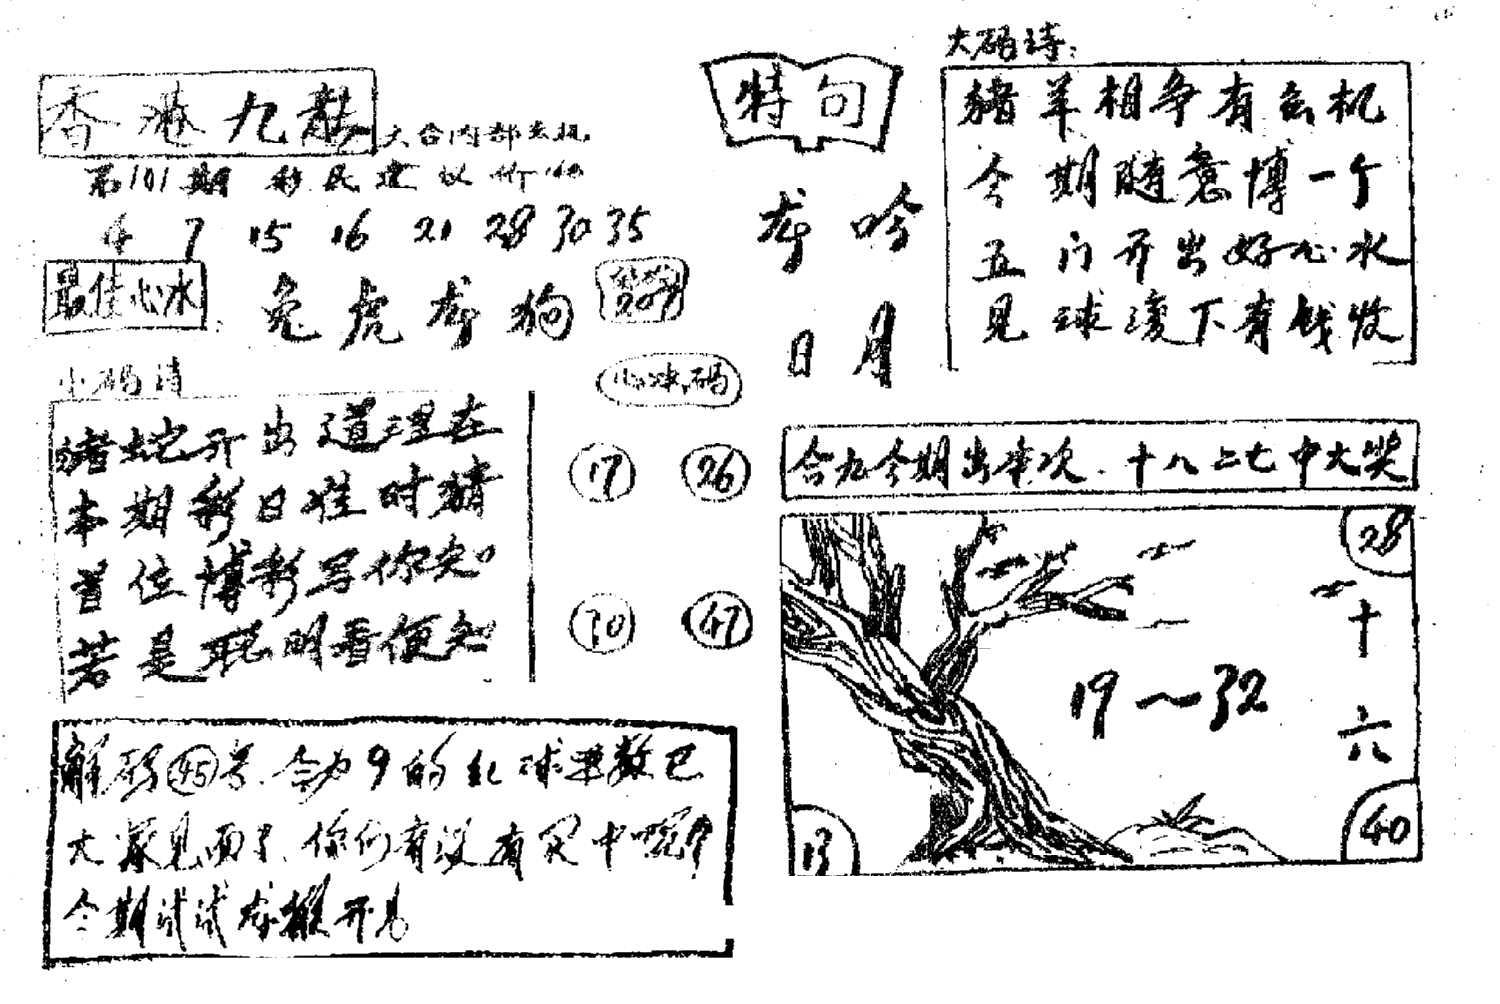 香港九龍
六合内部玄机
第101期 彩民建议价
4 7 15 16 21 28 30 35
最佳心水
兔虎龙狗
小码诗
猪蛇开出道理在
本期彩日谁时猜
首位博彩写你知
若是聪明看便知
心水码
17 26
30 47
解码45号.合为9的红球果数已
大家见面了.你们有没有买中呢?
今期试试龙猴开马
特句
龙吟
日月
大码诗:
猪羊相争有玄机
今期随意博一个
五门开出好心水
见球滚下有钱收
合九今期出本次.十八二七中大奖
28
十六
19~32
13
40